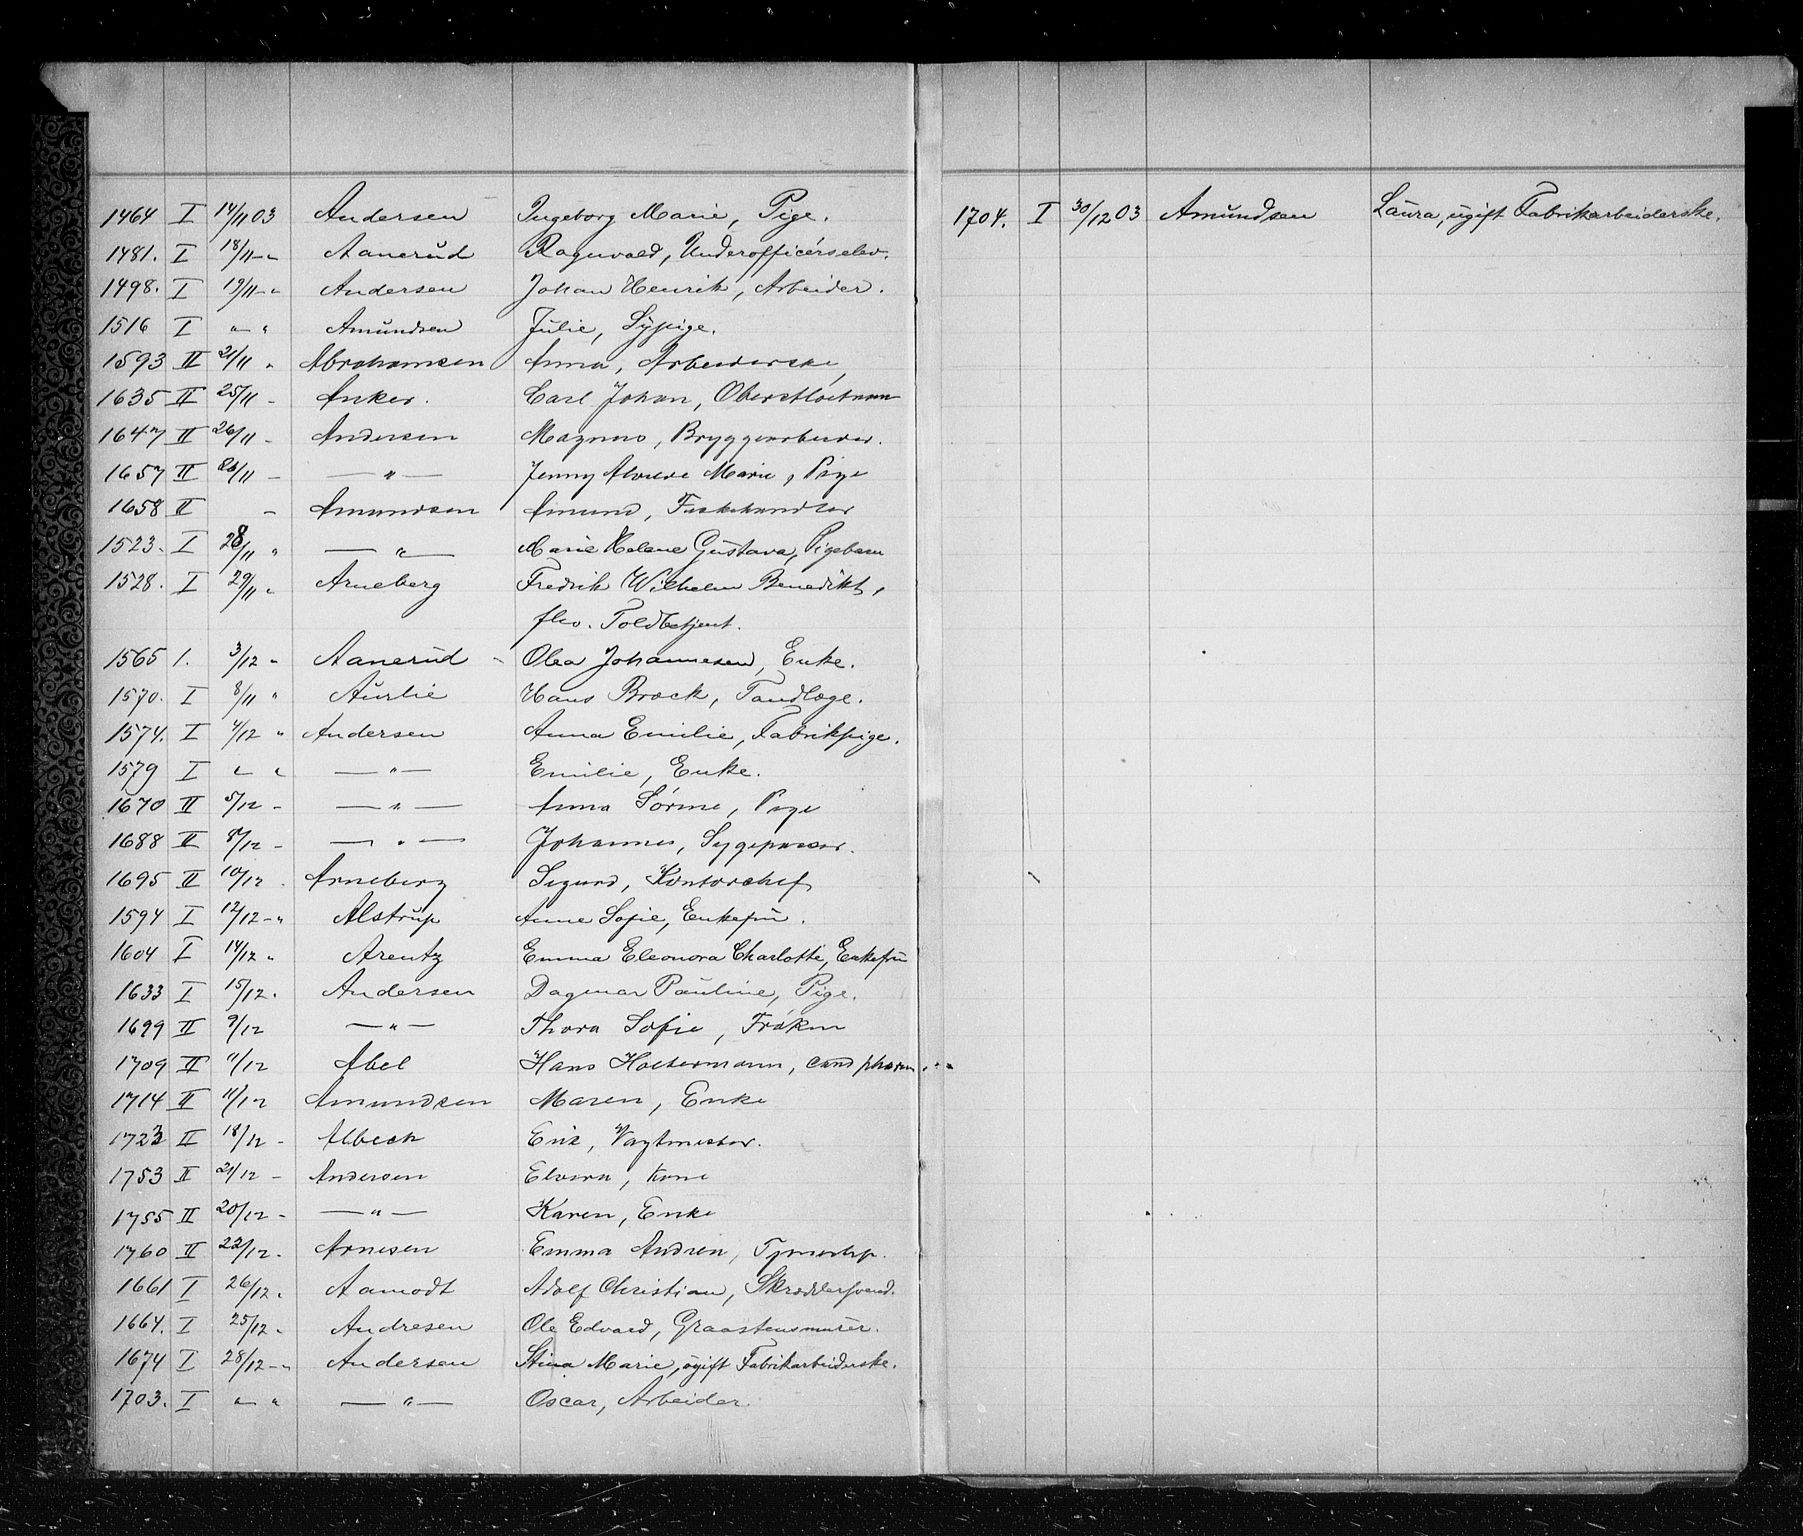 1464 I 14/11 03 Andersen Ingeborg Marie, Pige.
1481. I 18/11 - " Aanerud Ragnvald, Underofficerselev.
1498. I 19/11 - " Andersen Johan Henrik, Arbeider.
1516 I " - " Amundsen Julie, Sypige.
1593 II 21/11 " Abrahamsen Anna, Arbeiderske
1635 II 25/11 - Anker. Carl Johan, Oberstløitnan
1647 II 26/11 - Andersen Magnus, Bryggearbeider.
1657 II 26/11 - — " — Jenny Marie, Pige
1658 II - Amundsen Amund, Fiskehandler
1523. I 28/11 " — " — Marie Helene Gustava, Pigebarn
1528. I 29/11 " Arneberg Fredrik Wilhelm Benedikt,
fhv. Toldbetjent.
1565 1. 3/12 " Aanerud - Olea Johannesen, Enke.
1570. I 8/11 " Aurlie Hans Brock, Tandlæge.
1574. I 4/12 " Andersen Anna Emilie, Fabrikpige.
1579 I " " — " — Emilie, Enke.
1670 II 5/12 - — " — Anna Sørine, Pige
1688 II 8/12 - — " — Johannes, Sygepasser.
1695 II 10/12 . Arneberg Sigurd, Kontorchef
1594 I 12/12 - " Alstrup Anne Sofie, Enkefru.
1604 I 14/12 " Arentz Emma Eleonora Charlotte, Enkefru
1633 I 15/12 " Andersen Dagmar Pauline, Pige.
1699 II 9/12 — " — Thora Sofie, Frøken
1709 II 11/12 Abel Hans Holtermann, cand pharm...
1714 II 11/12 Amundsen Maren, Enke
1723 II 18/12 - Albeck Erik, Vagtmester.
1753 II 21/12 - Andersen Elvira, Kone
1755 II 20/12 - — " — Karen, Enke
1760 II 22/12 . Arnesen Emma Andrea,
1661 I 26/12 " Aamodt Adolf Christian, Skræddersvend.
1664. I 25/12 " Andresen Ole Edvard, Graastensmurer.
1674 I 28/12 - " Andersen Stina Marie, ugift Fabrikarbeiderske.
1703. I " - " — " — Oscar, Arbeider.
1704. I 30/12 03 Amundsen Laura, ugift Fabrikarbeiderske.